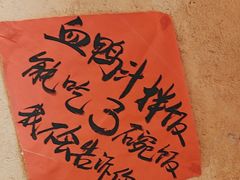 血鸭汁拌饭
能吃3碗饭
我告诉你